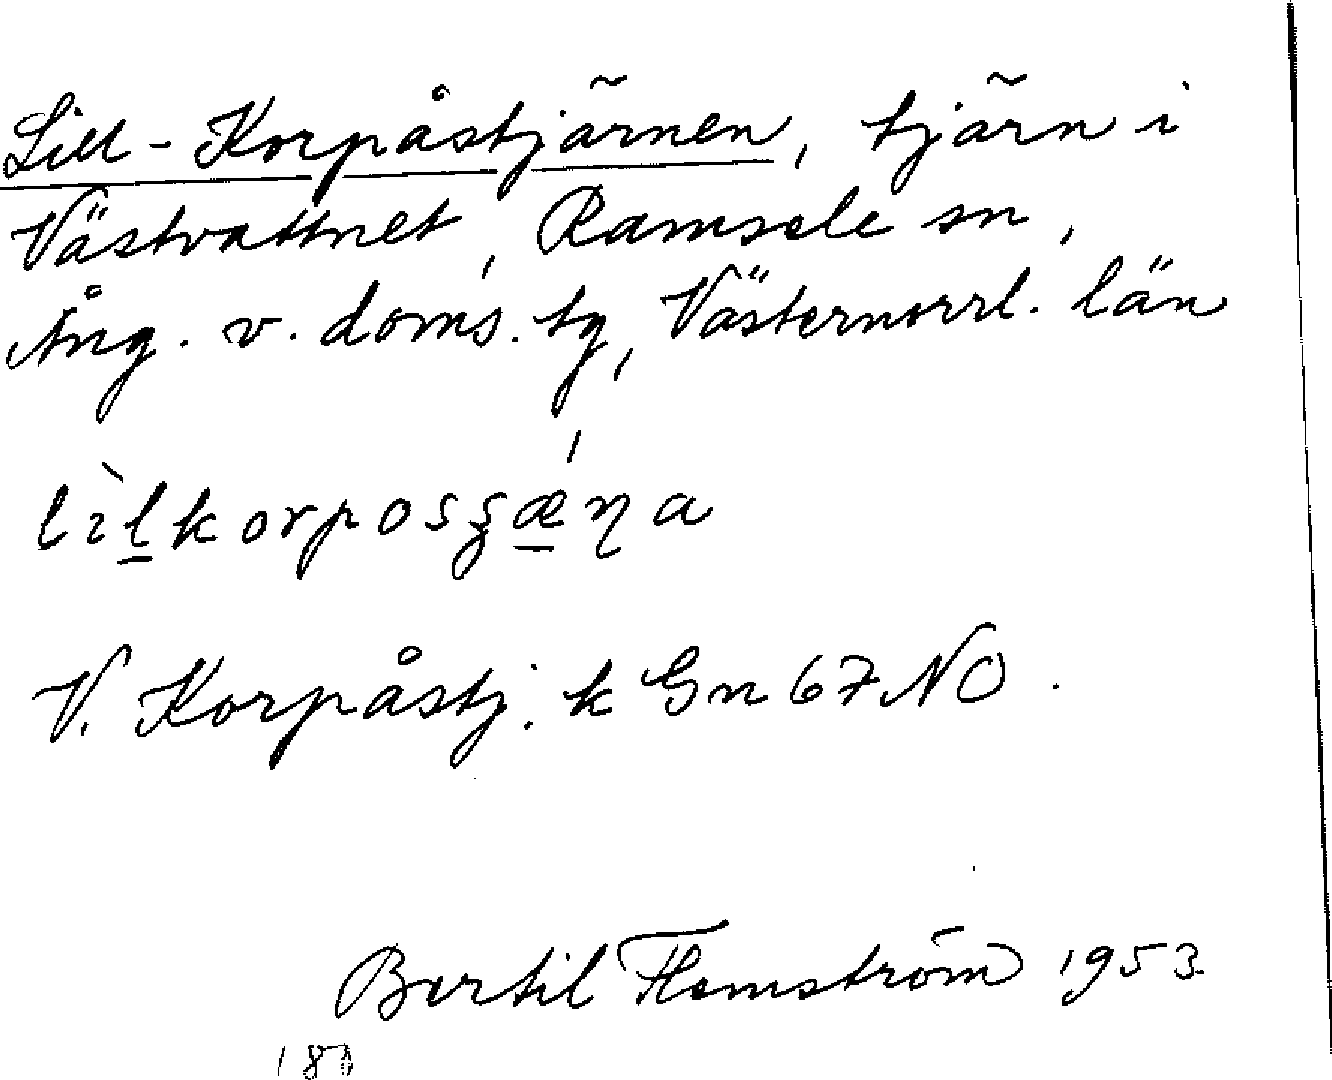 Lill-Korpåstjärnen, tjärn i
Västvattnet, Ramsele sn,
Ång. v. doms. tg, Västernorrl. län
V. Korpåstj. k Gn 67 NO.
Bertil Flemström 1953